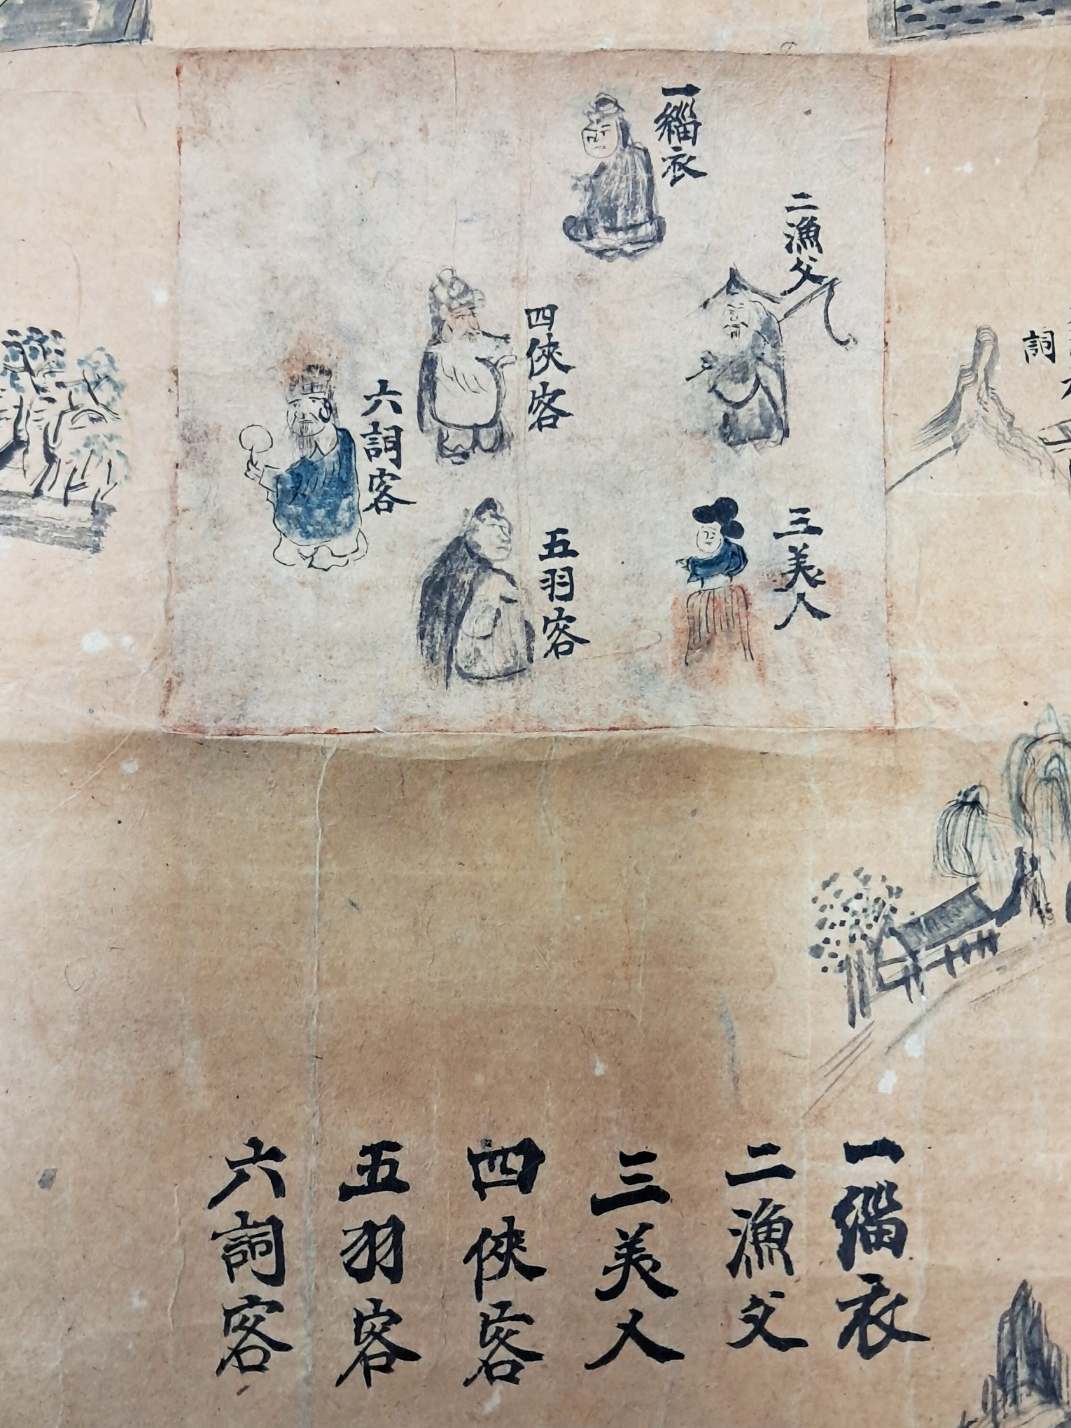 一緇衣
二漁父
三美人
四俠客
五羽客
六詞客
詞
一緇衣
二漁父
三美人
四俠客
五羽客
六詞客